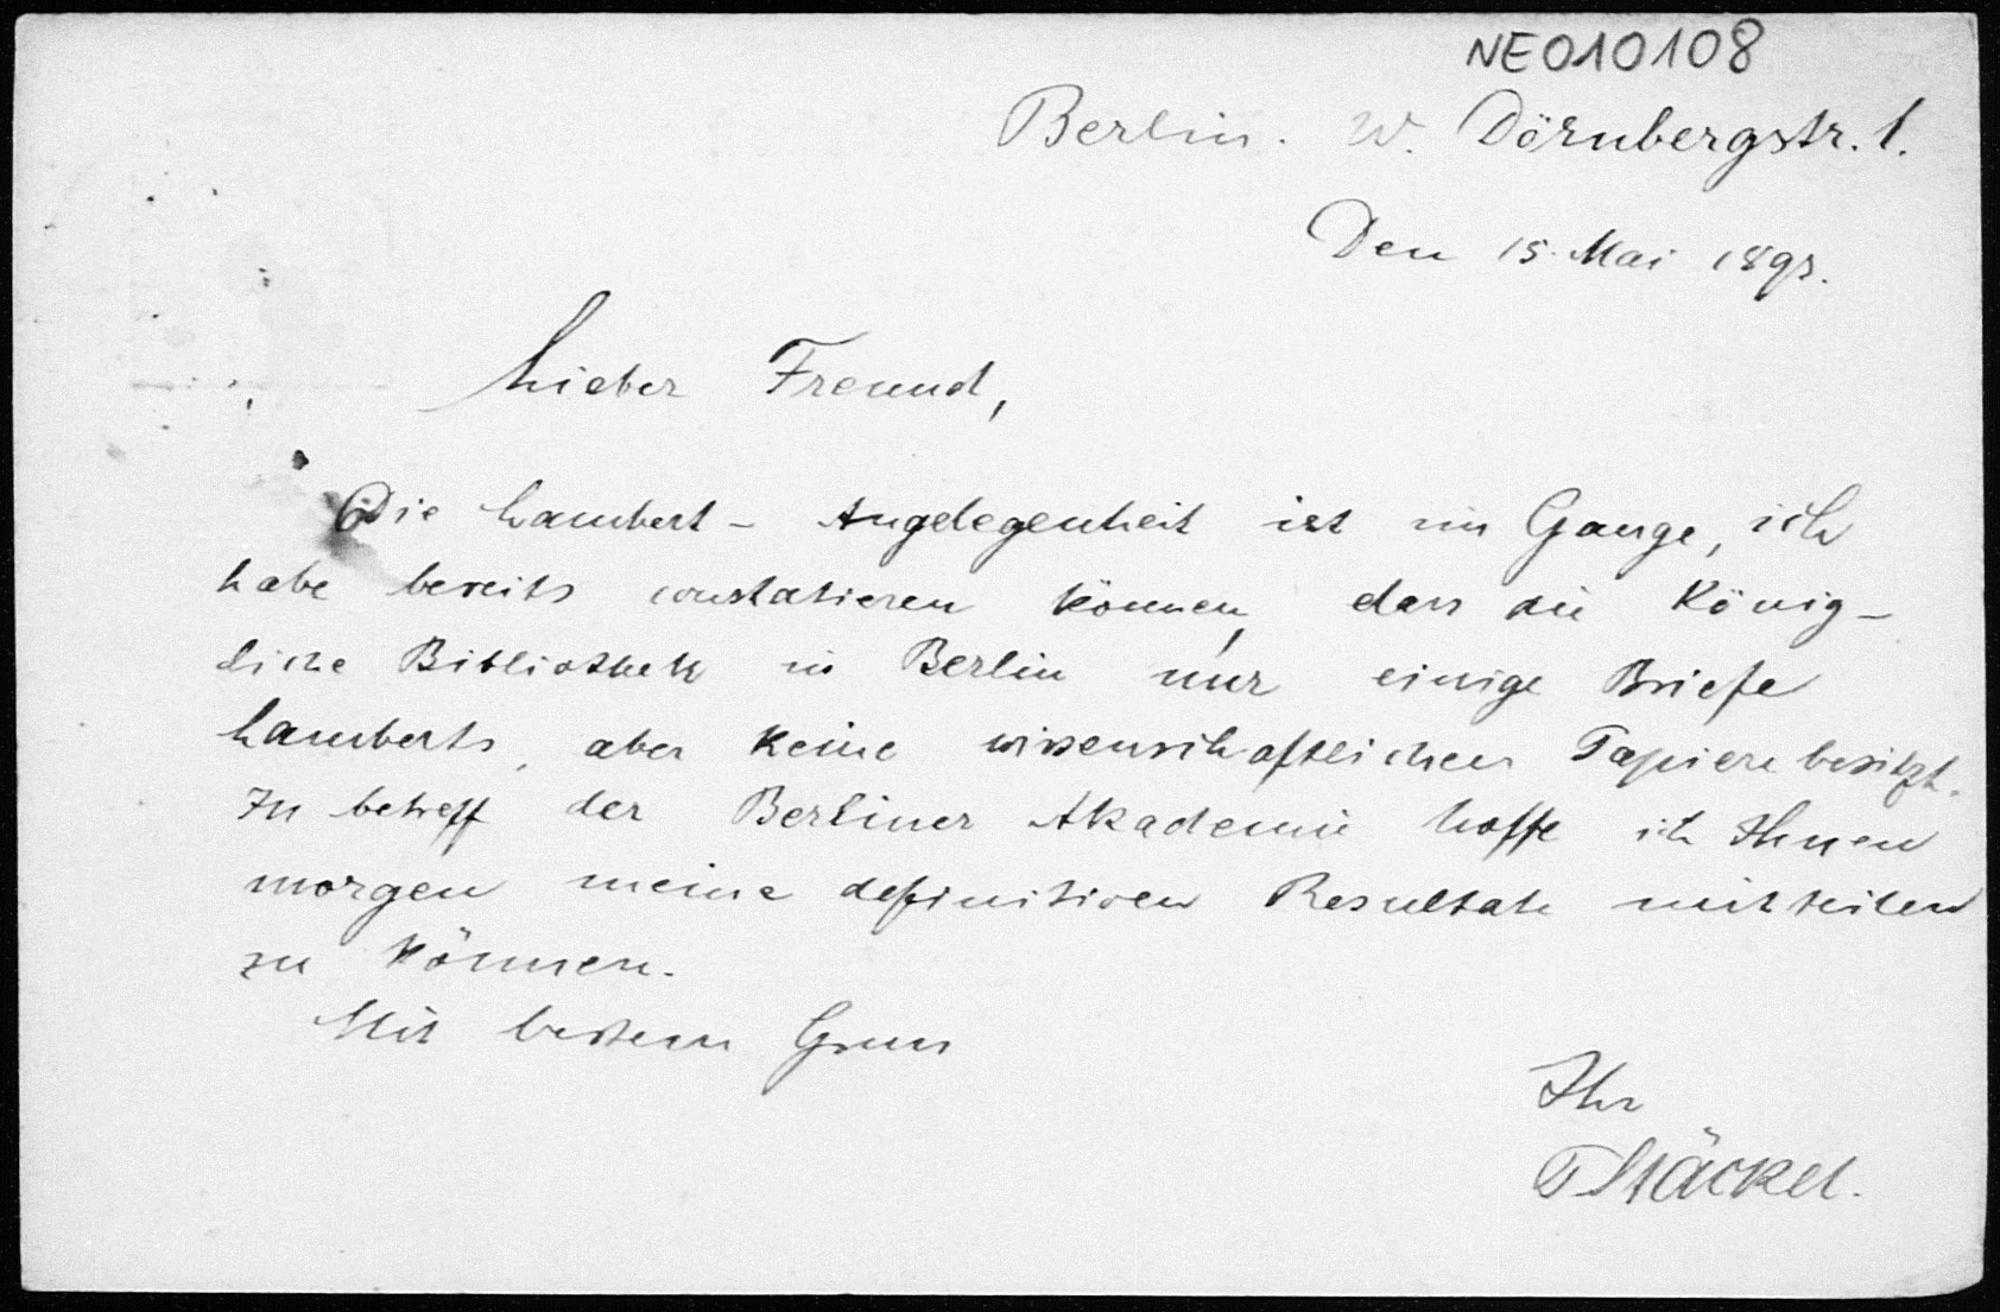 NE010108
Berlin. W. Dörnbergstr. 1.
Den 15. Mai 1893.
Lieber Freund,
Die Lambert-Angelegenheit ist im Gange, ich
habe bereits constatieren können, dass die König-
liche Bibliothek in Berlin nur einige Briefe
Lamberts, aber keine wissenschaftlichen Papiere besitzt.
In betreff der Berliner Akademie hoffe ich Ihnen
morgen meine definitiven Resultate mitteilen
zu können.
Mit bestem Gruss
Ihr
P Stäckel.